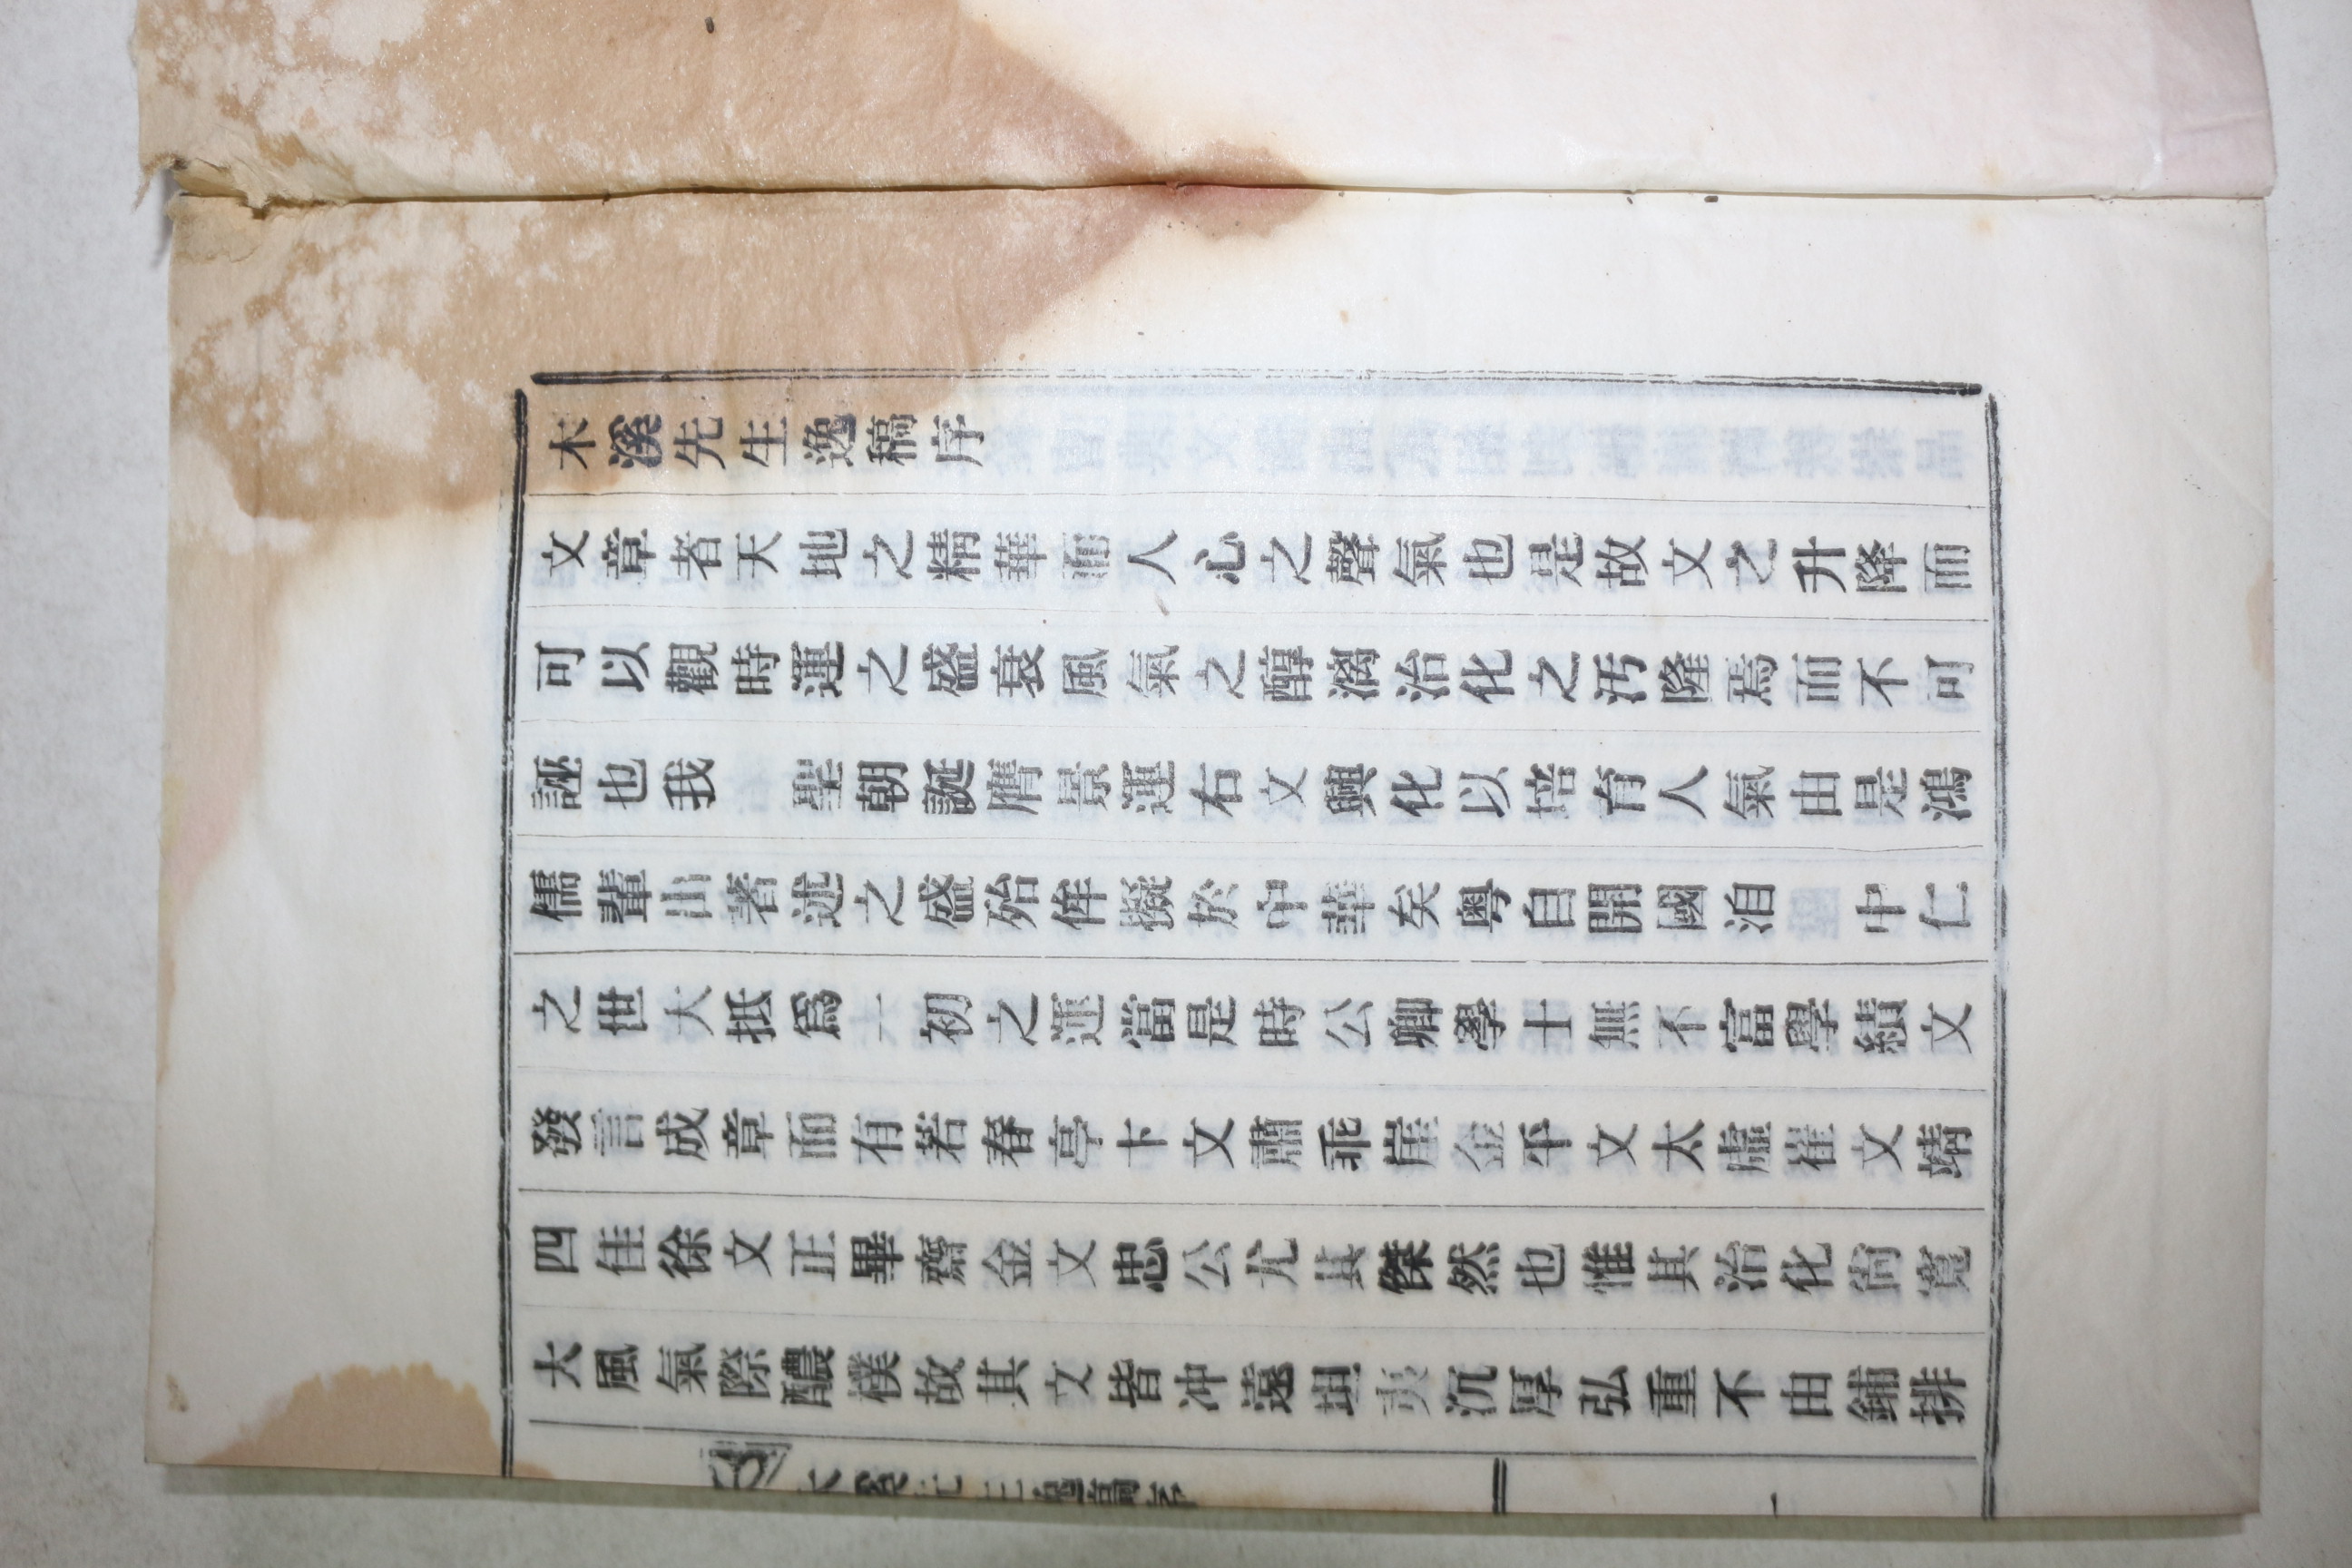 木溪先生逸稿序
文章者天地之精華而人心之聲氣也是故文之升降而
可以觀時運之盛衰風氣之醇漓治化之汚隆焉而不可
誣也我 聖朝誕膺景運右文興化以培育人氣由是鴻
儒輩出著述之盛殆侔擬於中華矣粤自開國洎 中仁
之世大抵爲一初之運當是時公卿學士無不富學績文
發言成章而有若春亭卞文肅乖崖金平文太虛崔文靖
四佳徐文正畢齋金文忠公尤其傑然也惟其治化尙寬
大風氣際醲樸故其文皆冲遠坦夷沉厚弘重不由鋪排
木溪先生逸稿序 一